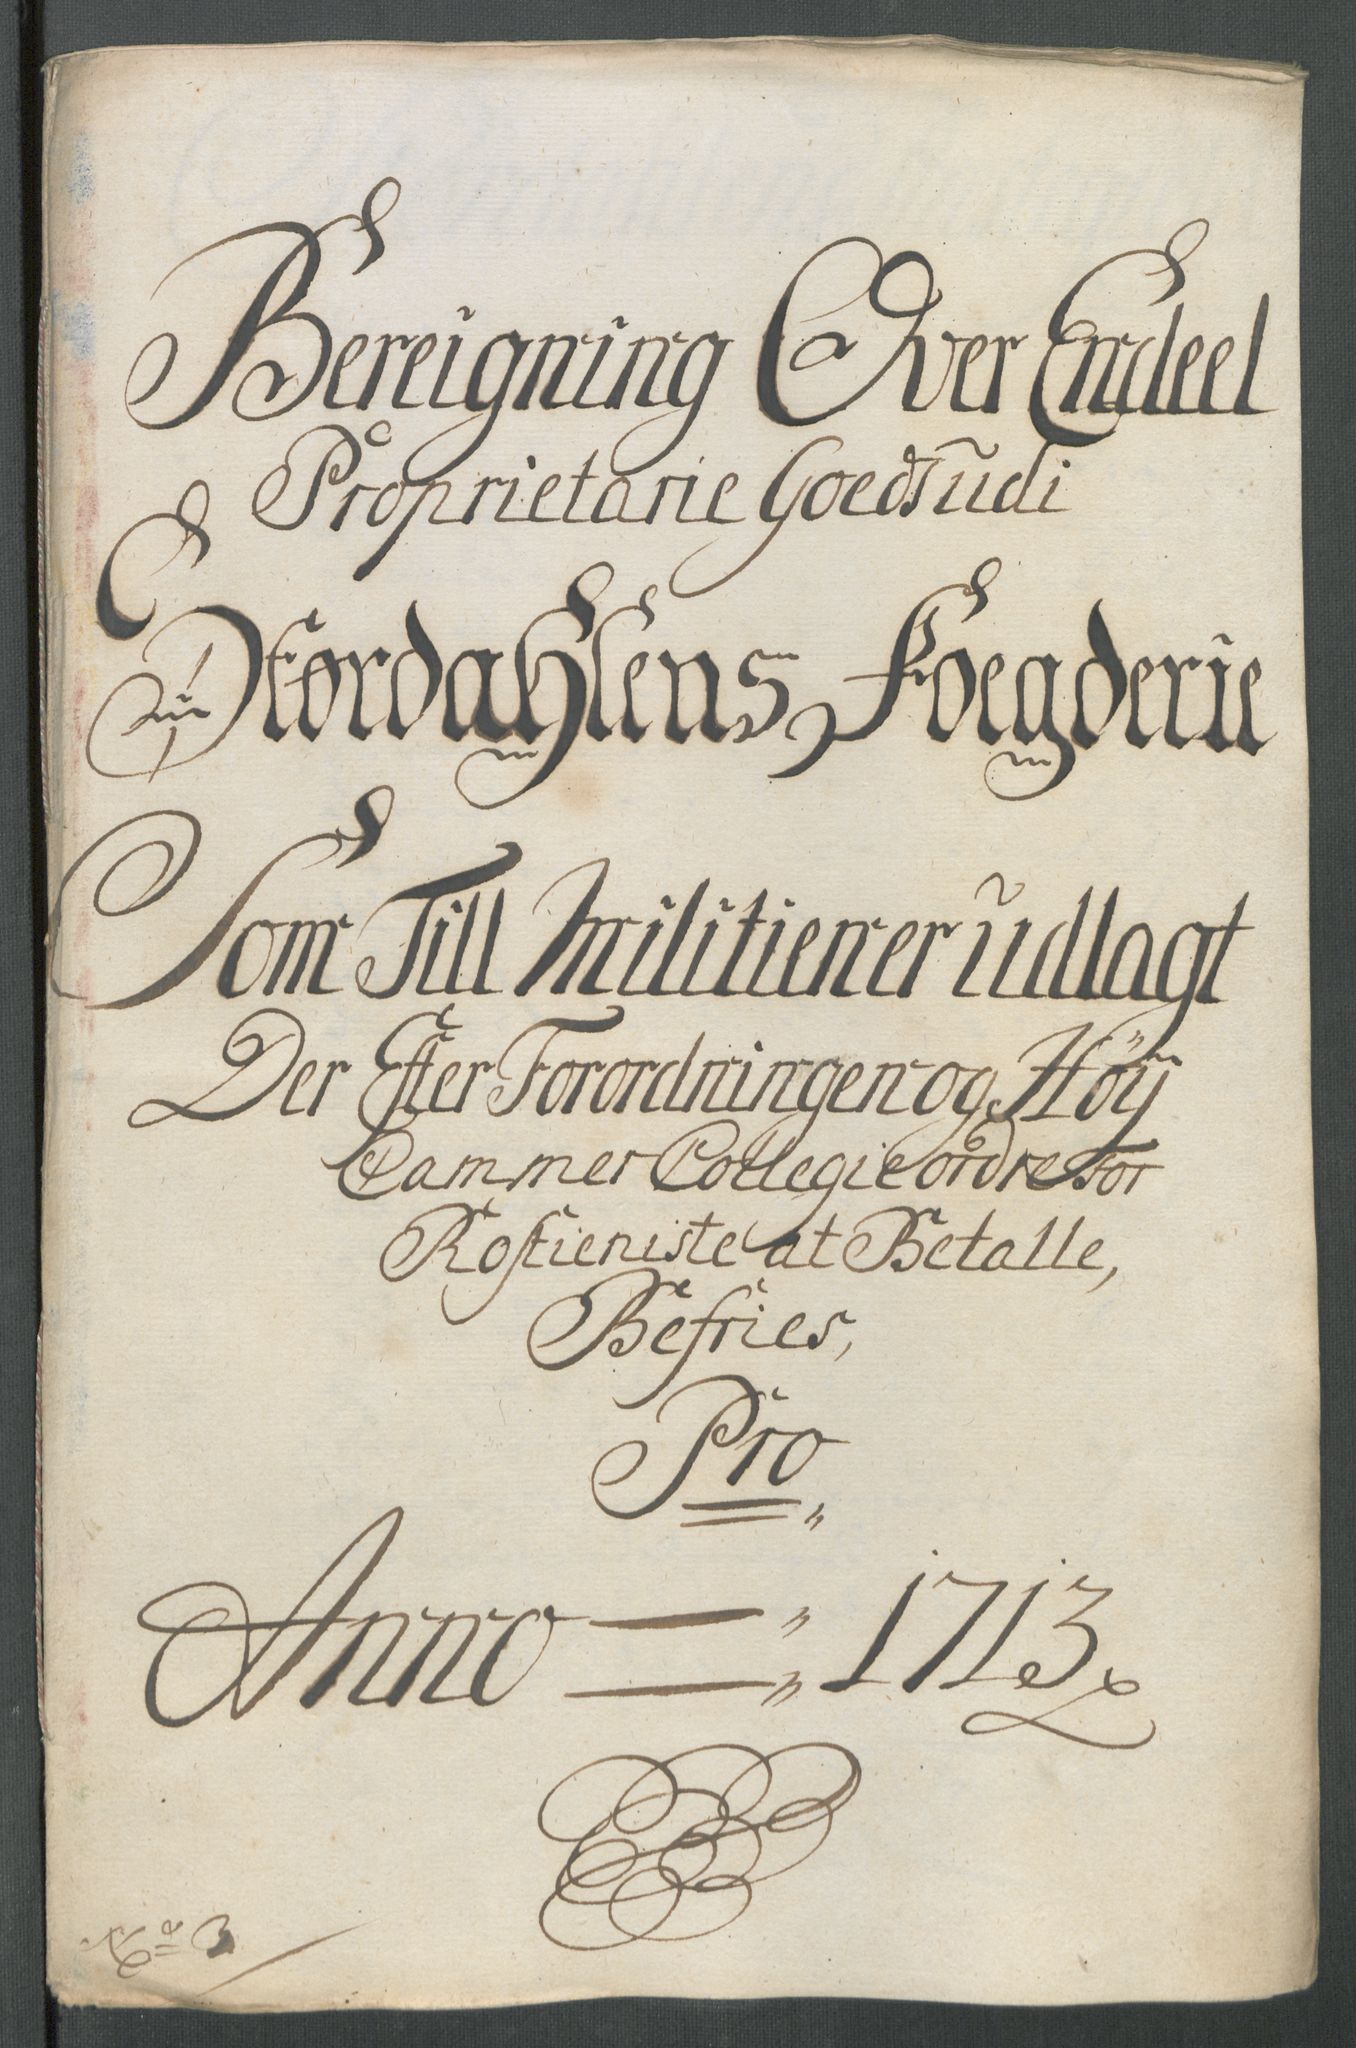 Bereigning Over Endeel
Proprietarie Goeds udi
Størdahlens Foegderie
Som Till Militien er udlagt
Der Efter Forordningen og Höÿ
Cammer Collegie ordre for
Rostieniste at Betalle,
Befries,
Pro
Anno 1713